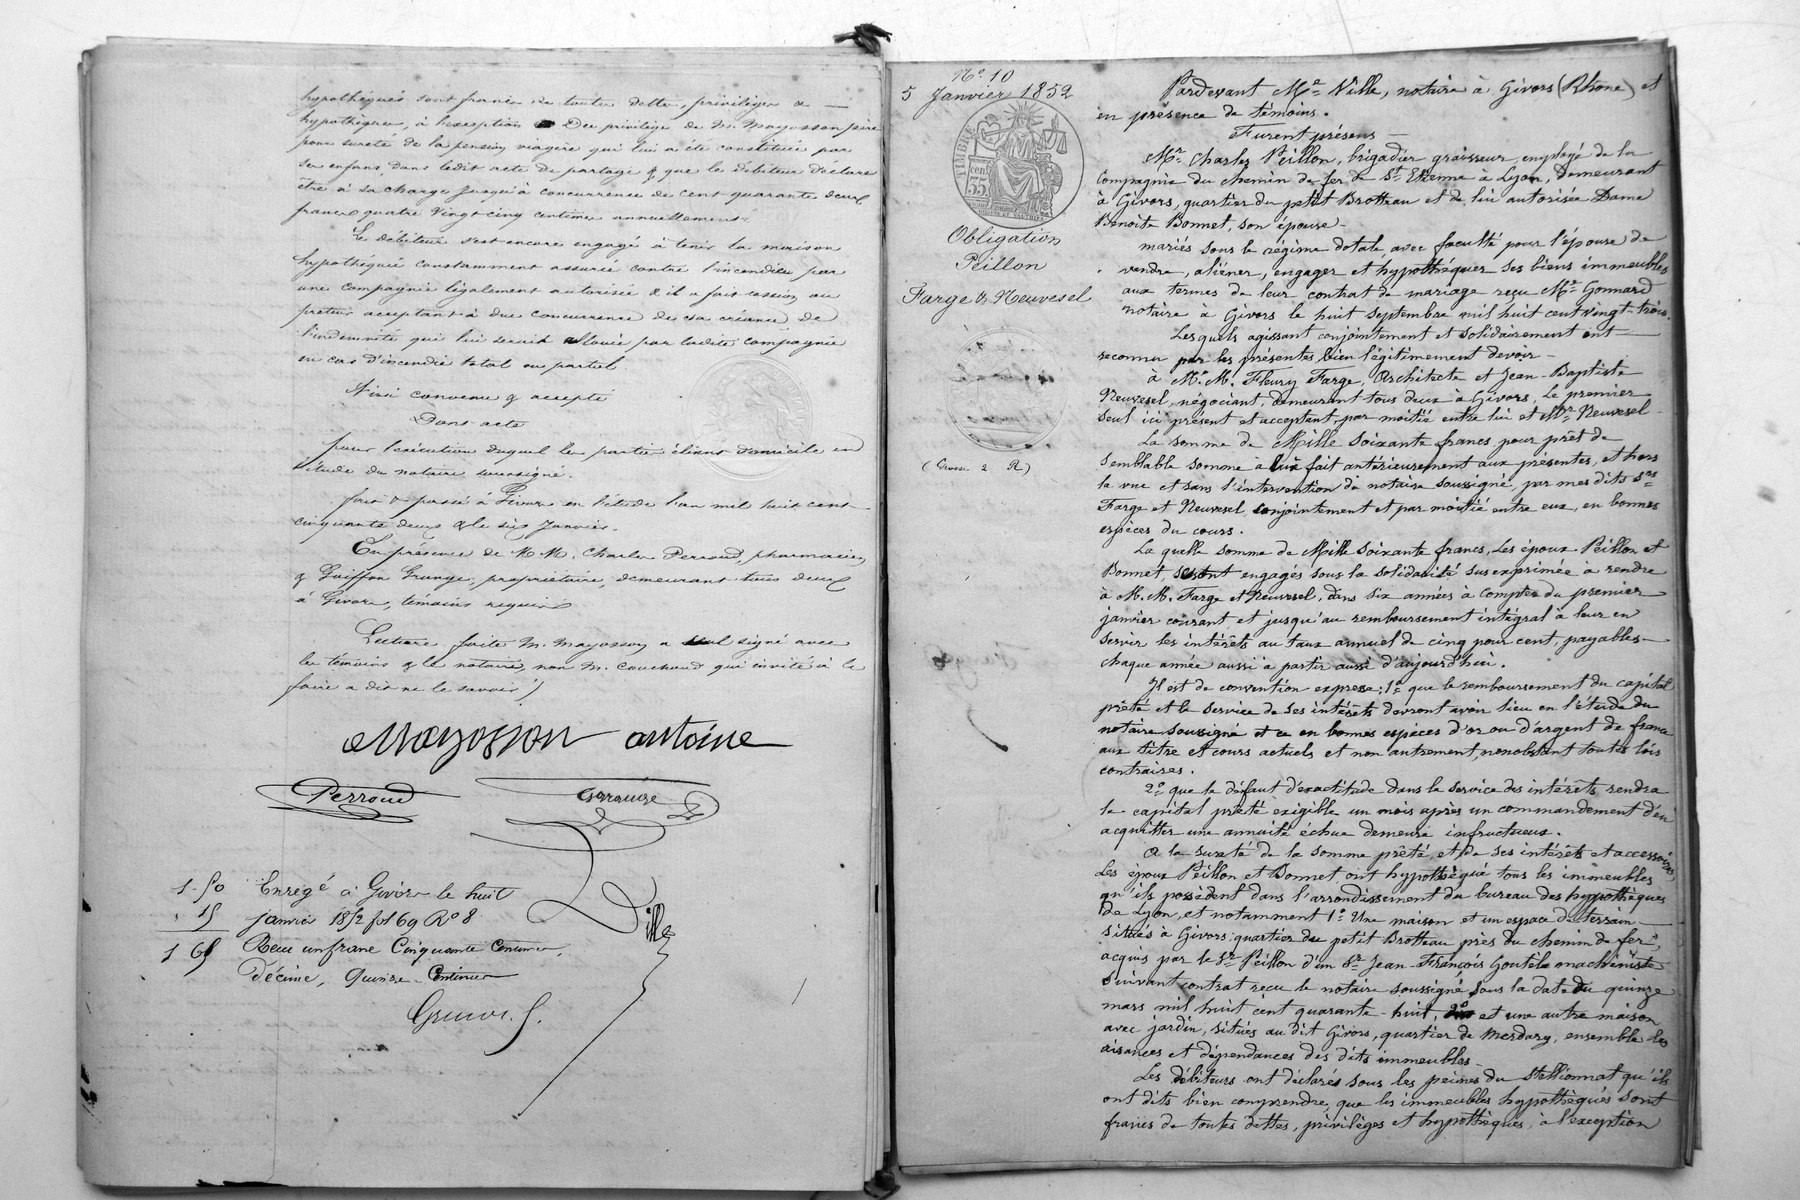 hypothéqués sont francs de toute dette, privilèges &
hypothèques, à l'exception Du privilège de M. Mayosson père
pour sureté de la pension viagère qui lui a été constituée par
ses enfans, dans ledit acte de partage & que le débiteur déclare
être à sa charge jusqu'à concurrence de cent quarante deux
francs quatre vingt cinq centimes annuellement.
Le débiteur s'est encore engagé à tenir la maison
hypothéquée constamment assurée contre l'incendie par
une compagnie légalement autorisée & il a fait cession au
prêteur acceptant à due concurrence de sa créance de
l'indemnité qui lui serait allouée par ladite compagnie
en cas d'incendie total ou partiel
Ainsi convenu & accepté
Dont acte
pour l'exécution duquel les parties élisent domicile en
l'étude du notaire soussigné.
fait & passé à Givors en l'étude l'an mil huit cent
cinquante deux & le six Janvier.
En présence de M.M. Charles Perroud, pharmacien,
& Goiffon Grange, propriétaire, demeurant tous deux
à Givors, témoins requis
Lecture faite M. Mayosson a seul signé avec
les témoins & le notaire, non M. Couchoud qui invité à le
faire a dit ne le savoir
Mayosson antoine
Perroud Grange
Ville
1.50 Enregé à Givors le huit
" 15 janvier 1852 fol 69 Ro 8
1 65 Recu un franc Cinquante Centimes,
Décime, Quinze Centimes
No. 10
5 Janvier 1852
TIMBRE
35 cen
Obligation
Peillon
à
Farge & Neuvesel
(Grosse 2 R)
Pardevant Me Ville, notaire à Givors (Rhône) et
en présence de témoins.
Furent présens
Mr. Charles Peillon, brigadier graisseur, employé de la
compagnie du chemin de fer de St Etienne à Lyon, Demeurant
à Givors, quartier du petit Brotteau et de lui autorisée Dame
Benoite Bonnet, son épouse
mariés sous le régime dotale, avec faculté pour l'épouse de
vendre, aliéner, engager et hypothéquer ses biens immeubles
aux termes de leur contrat de mariage reçu Me Gonnard
notaire à Givors le huit septembre mil huit cent vingt-trois.
Lesquels agissant conjointement et solidairement ont
reconnu par les présentes bien légitimement devoir
à M. M. Fleury Farge, Architecte et Jean-Baptiste
Neuvesel, négociant, demeurant tous deux à Givors, le premier
seul ici présent et acceptant, par moitié entre lui et Mr Neuvesel
La somme de Mille soixante francs, pour prêt de
semblable somme à eux fait antérieurement aux présentes, et hors
la vue et sans l'intervention du notaire soussigné, par mes dits Srs
Farge et Neuvesel, conjointement et par moitié entre eux, en bonnes
espèces du cours.
La quelle somme de Mille soixante francs, Les époux Peillon et
Bonnet, se sont engagés sous la solidarité susexprimée à rendre
à M. M. Farge et Neuvesel, dans six années à compter du premier
janvier courant et jusqu'au remboursement intégral à leur en
servir les intérêts au taux annuel de cinq pour cent, payables
chaque année aussi à partir aussi d'aujourd'hui.
Il est de convention expresse: 1o que le remboursement du capital
prêté et le service de ses intérêts devront avoir lieu en l'étude du
notaire soussigné et ce en bonnes espèces d'or ou d'argent de france
aux titre et cours actuels et non autrement, nonobstant toutes lois
contraires.
2o que le défaut d'exactitude dans le service des intérêts rendra
le capital prêté exigible un mois après un commandement d'en
acquitter une annuité échue demeuré infructueux.
A la sureté de la somme prêtée, et de ses intérêts et accessoires,
Les époux Peillon et Bonnet ont hypothéqué tous les immeubles
qu'ils possèdent dans l'arrondissement du bureau des hypothèques
De Lyon, et notamment 1o Une maison et un espace de terrain
situés à Givors quartier du petit Brotteau près du chemin de fer,
acquis par le Sr Peillon d'un Sr Jean-François Goutèle machiniste
suivant contrat reçu le notaire soussigné, sous la date du quinze
mars mil huit cent quarante-huit, 2o et une autre maison
avec jardin, situés au dit Givors, quartier de Merdary, ensemble les
aisances et dépendances des dits immeubles
Les débiteurs ont déclarés sous les peines du stellionnat qu'ils
ont dits bien comprendre, que les immeubles hypothéqués sont
francs de toutes dettes, privilèges et hypothèques, à l'exception